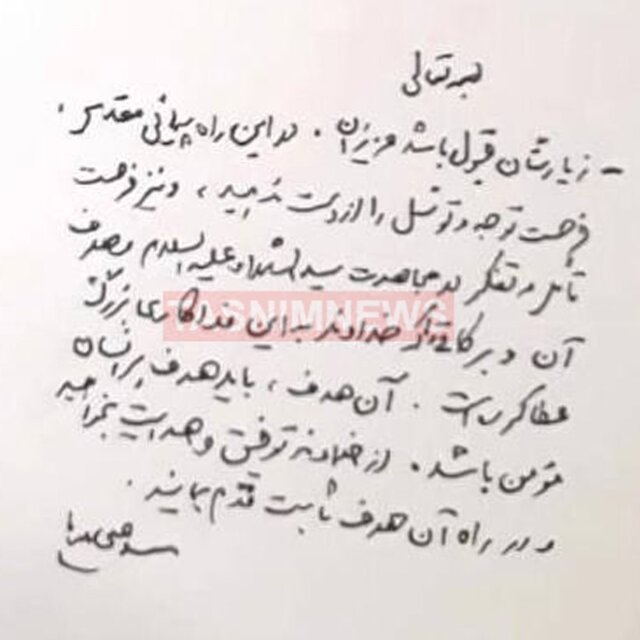 بسمه‌تعالی
- زیارتتان قبول باشد عزیزان. در این راه‌پیمائی مقدس،
فرصت توجه و توسّل را از دست ندهید، و نیز فرصت
تأمل و تفکر در مجاهدت سیدالشهداء علیه السلام و هدف
آن و برکاتی که خداوند به این فداکاری بزرگ
TASNIMNEWS
عطا کرده است. آن هدف، باید هدف هر انسان
مؤمن باشد. از خداوند توفیق و هدایت بخواهید
و در راه آن هدف ثابت قدم بمانید.